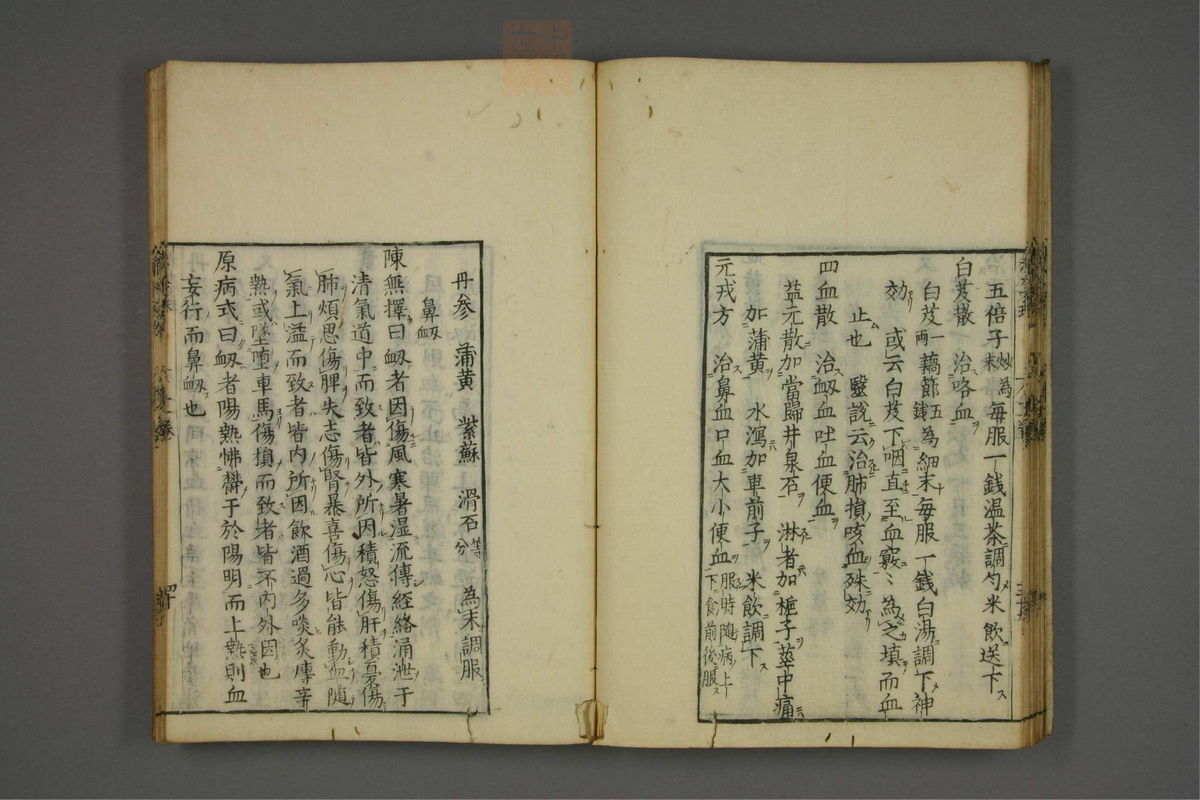 五倍子炒為末每服一銭温茶調勻米飲送下
白芨散 治咯血
白芨一両藕節五銭為細末每服一銭白湯調下神
効 或云白芨下咽直至血竅〻為之填而血
止也 醫説云治肺損咳血殊効
四血散 治衂血吐血便血
益元散加當歸井泉石 淋者加梔子莖中痛
加蒲黄 水瀉加車前子 米飲調下
元戎方 治鼻血口血大小便血服時隨病上下食前後服
丹參 蒲黄 紫蘇 滑石等分 為末調服
鼻衂
陳無擇曰衂者因傷風寒暑湿流傳経絡涌泄于
清氣道中而致者皆外所因積怒傷肝積憂傷
肺煩思傷脾失志傷腎暴喜傷心皆能動血隨
氣上溢而致者皆内所因飲酒過多啖炙煿辛
熱或墜堕車馬傷損而致者皆不内外因也
原病式曰衂者陽熱怫欝于於陽明而上熱則血
妄行而鼻衂也